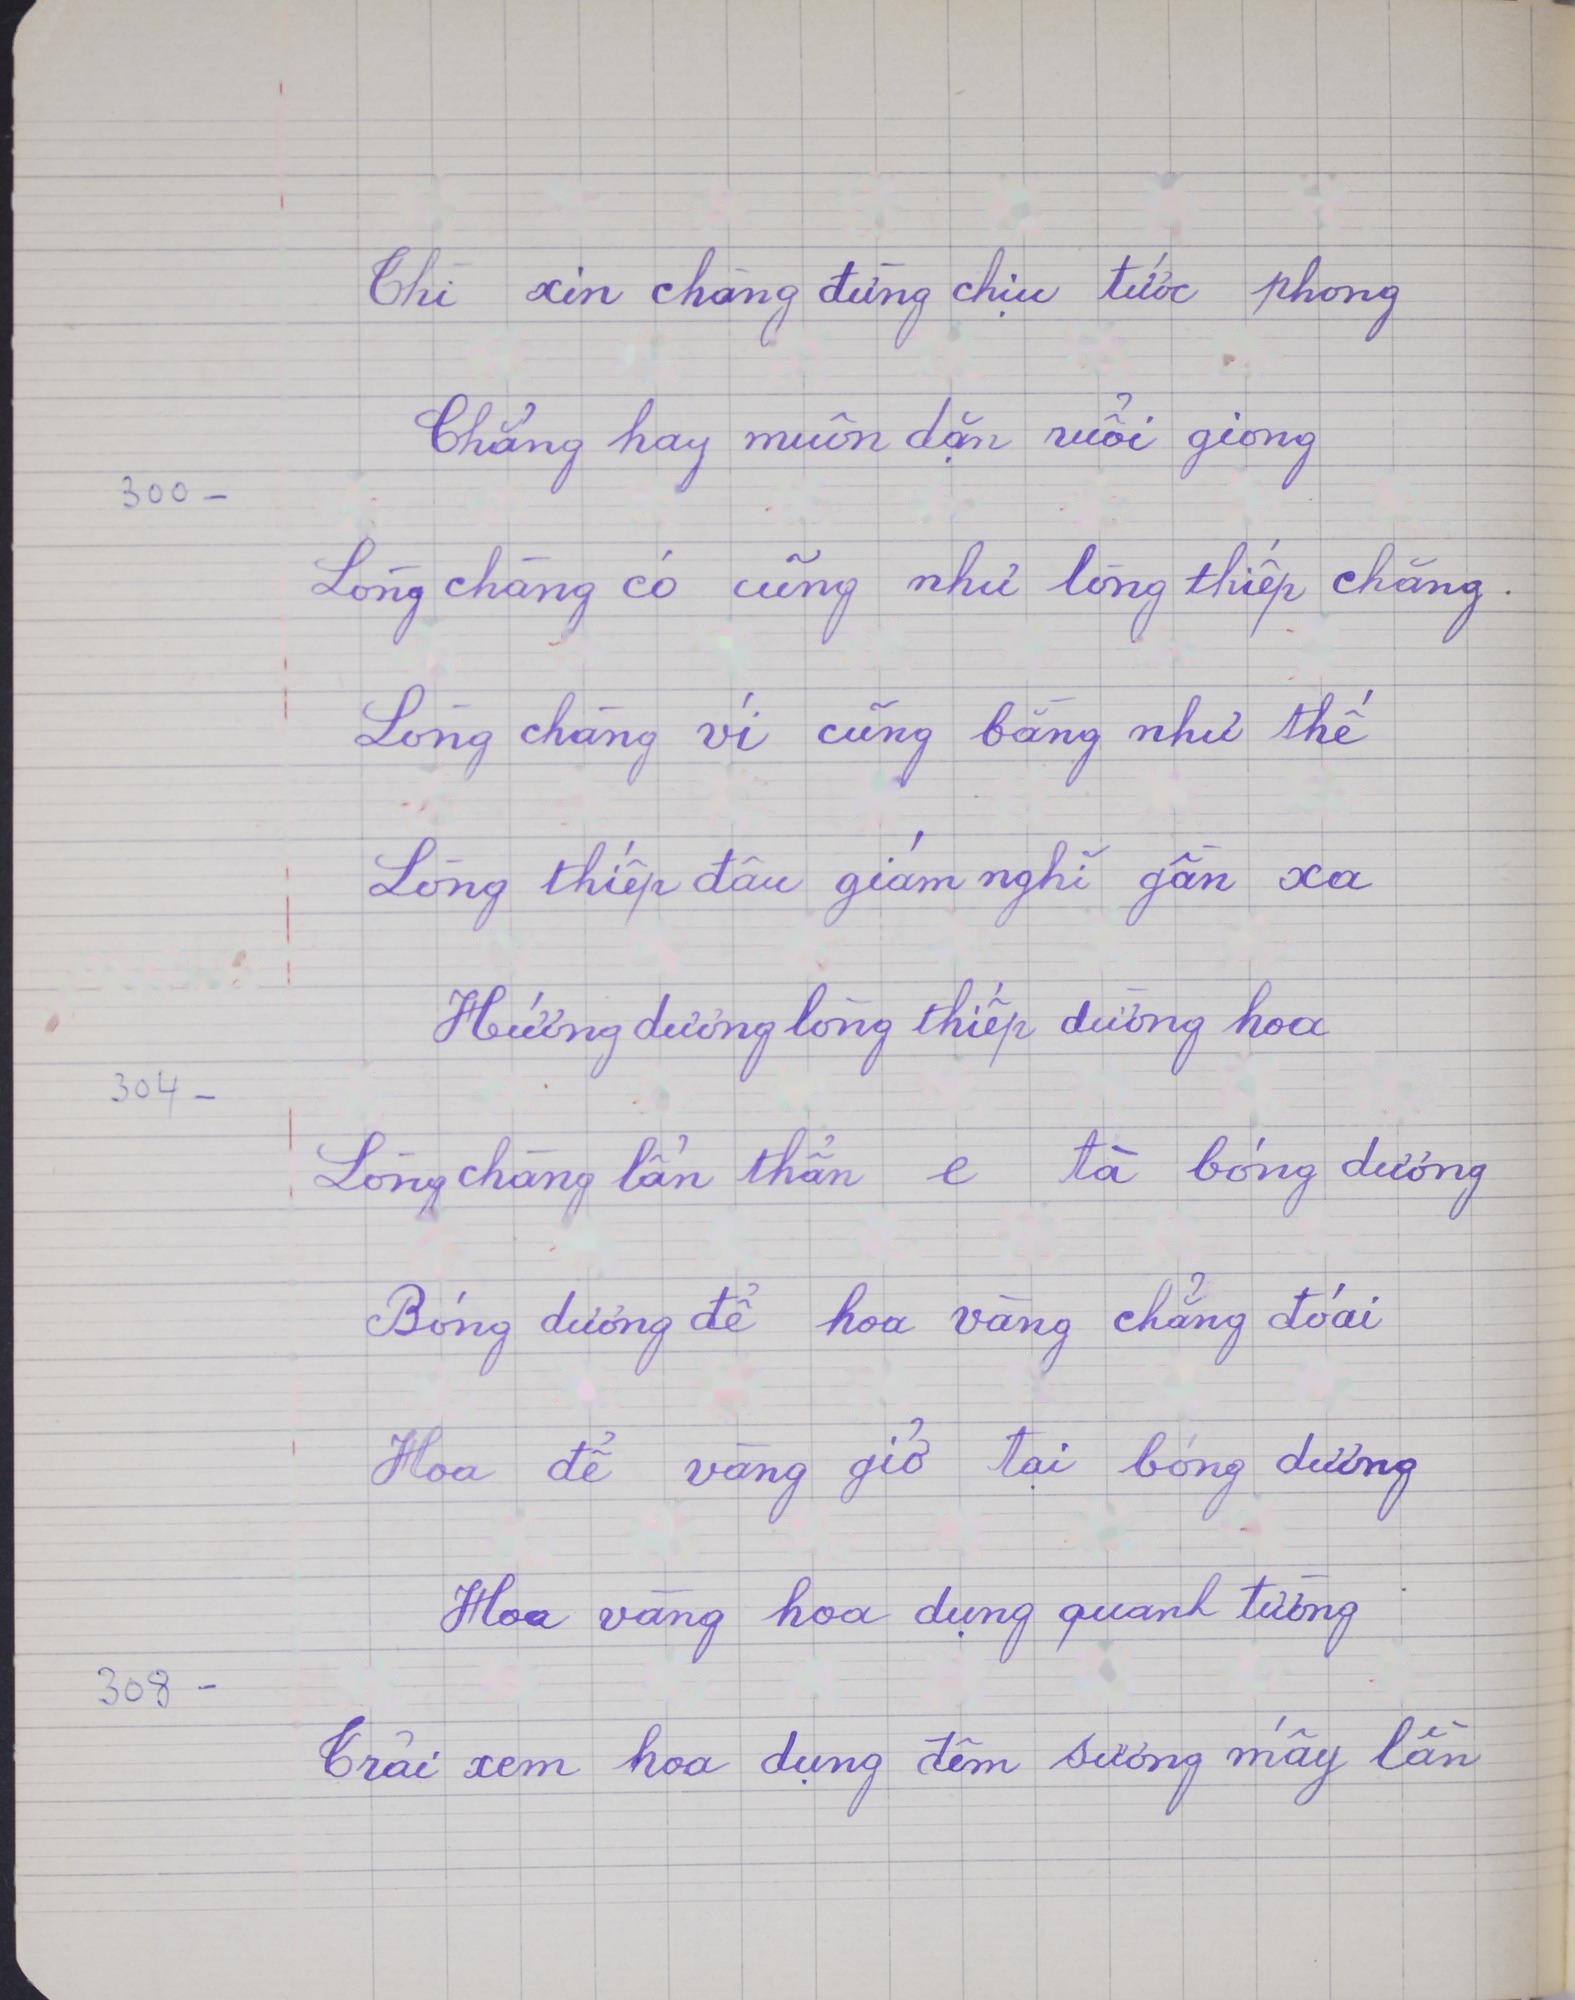 Thì xin chàng đừng chịu tước phong
Chẳng hay muôn dặn ruổi giong
300 –
Lòng chàng có cũng như lòng thiếp chăng.
Lòng chàng ví cũng bằng như thế
Lòng thiếp đâu giám nghĩ gần xa
Hướng dương lòng thiếp dường hoa
304 –
Lòng chàng lẩn thẩn e tà bóng dương
Bóng dương để hoa vàng chẳng đóai
Hoa để vàng giở tại bóng dương
Hoa vàng hoa dụng quanh tường
308 –
Trải xem hoa dụng đêm sương mấy lần